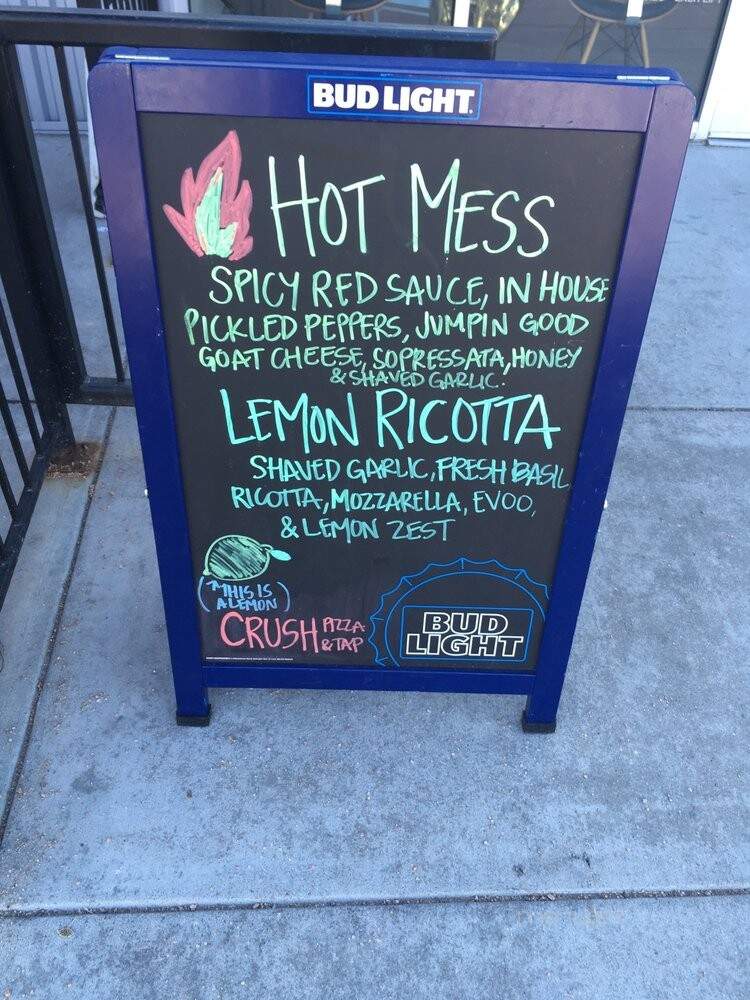 BUD LIGHT
HOT MESS
SPICY RED SAUCE, IN HOUSE
PICKLED PEPPERS, JUMPIN GOOD
GOAT CHEESE, SOPRESSATA, HONEY
& SHAVED GARLIC.
LEMON RICOTTA
SHAVED GARLIC, FRESH BASIL
RICOTTA, MOZZARELLA, EVOO,
& LEMON ZEST
(THIS IS
A LEMON)
CRUSH PIZZA
& TAP
BUD
LIGHT